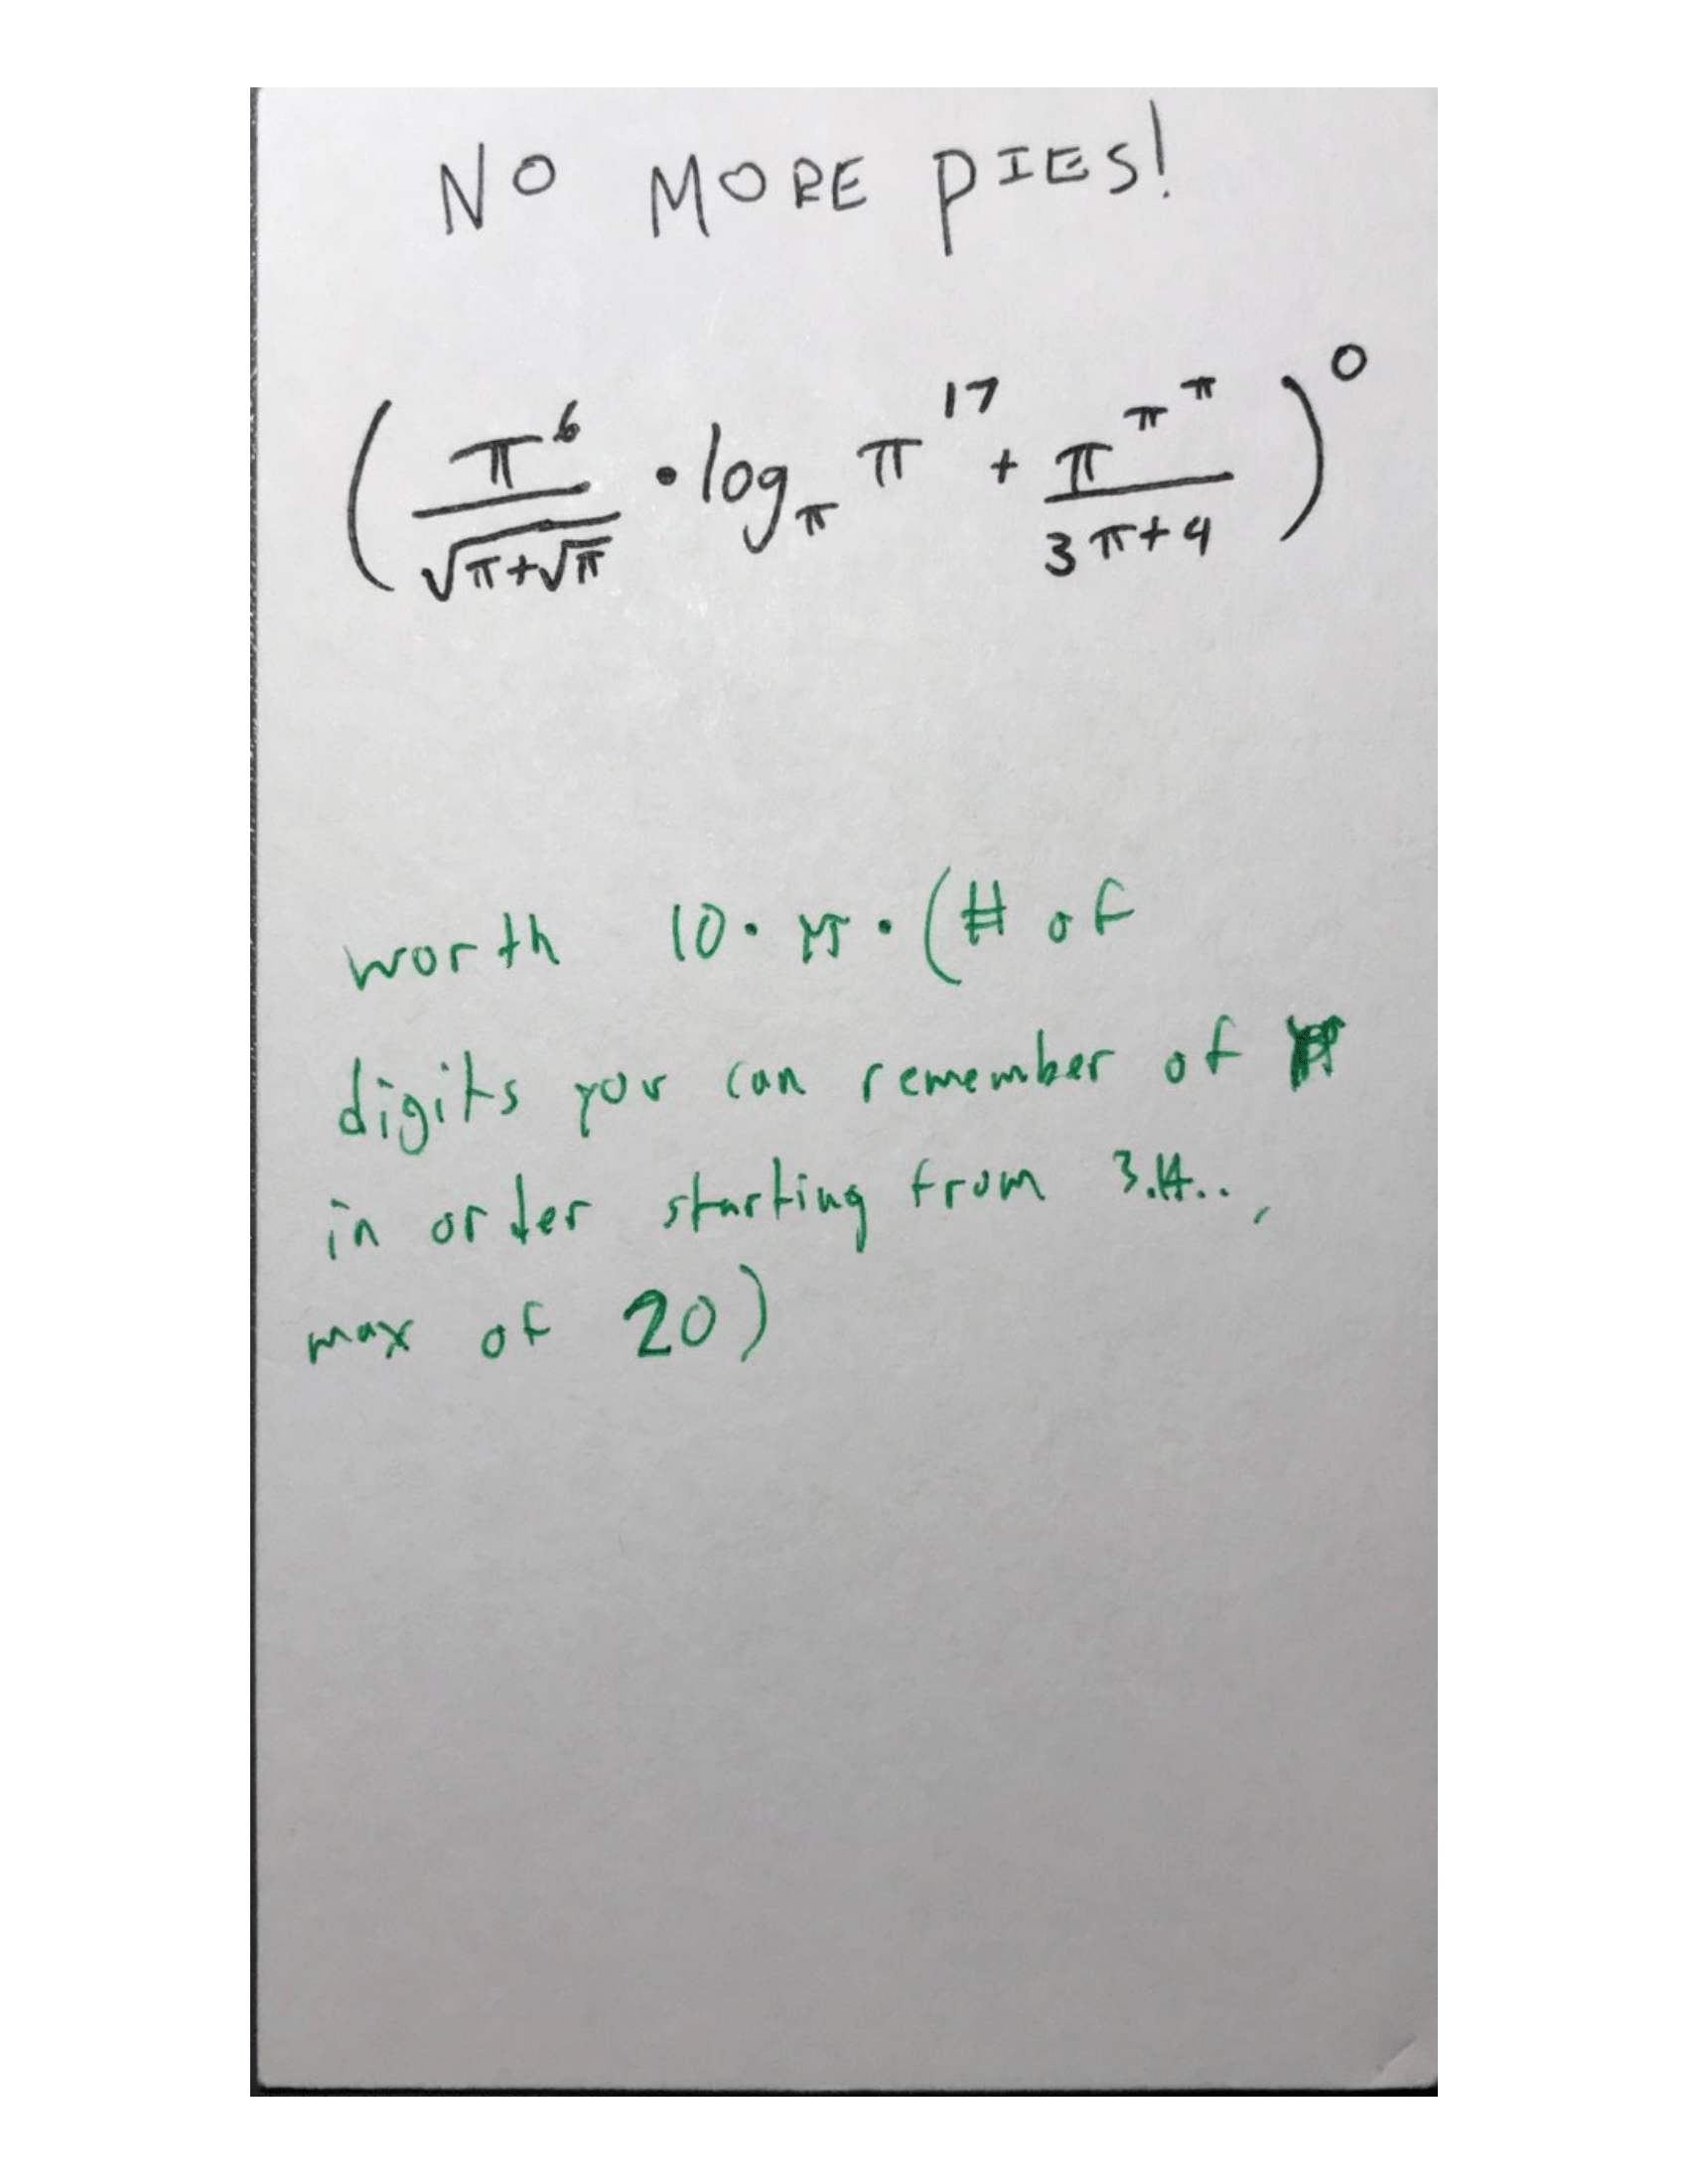 NO MORE PIES!
(π⁶/√(π+√π) · log_π π¹⁷ + π^π^π/(3π+4))⁰
worth 10 · π · (# of
digits you can remember of π
in order starting from 3.14..,
max of 20)